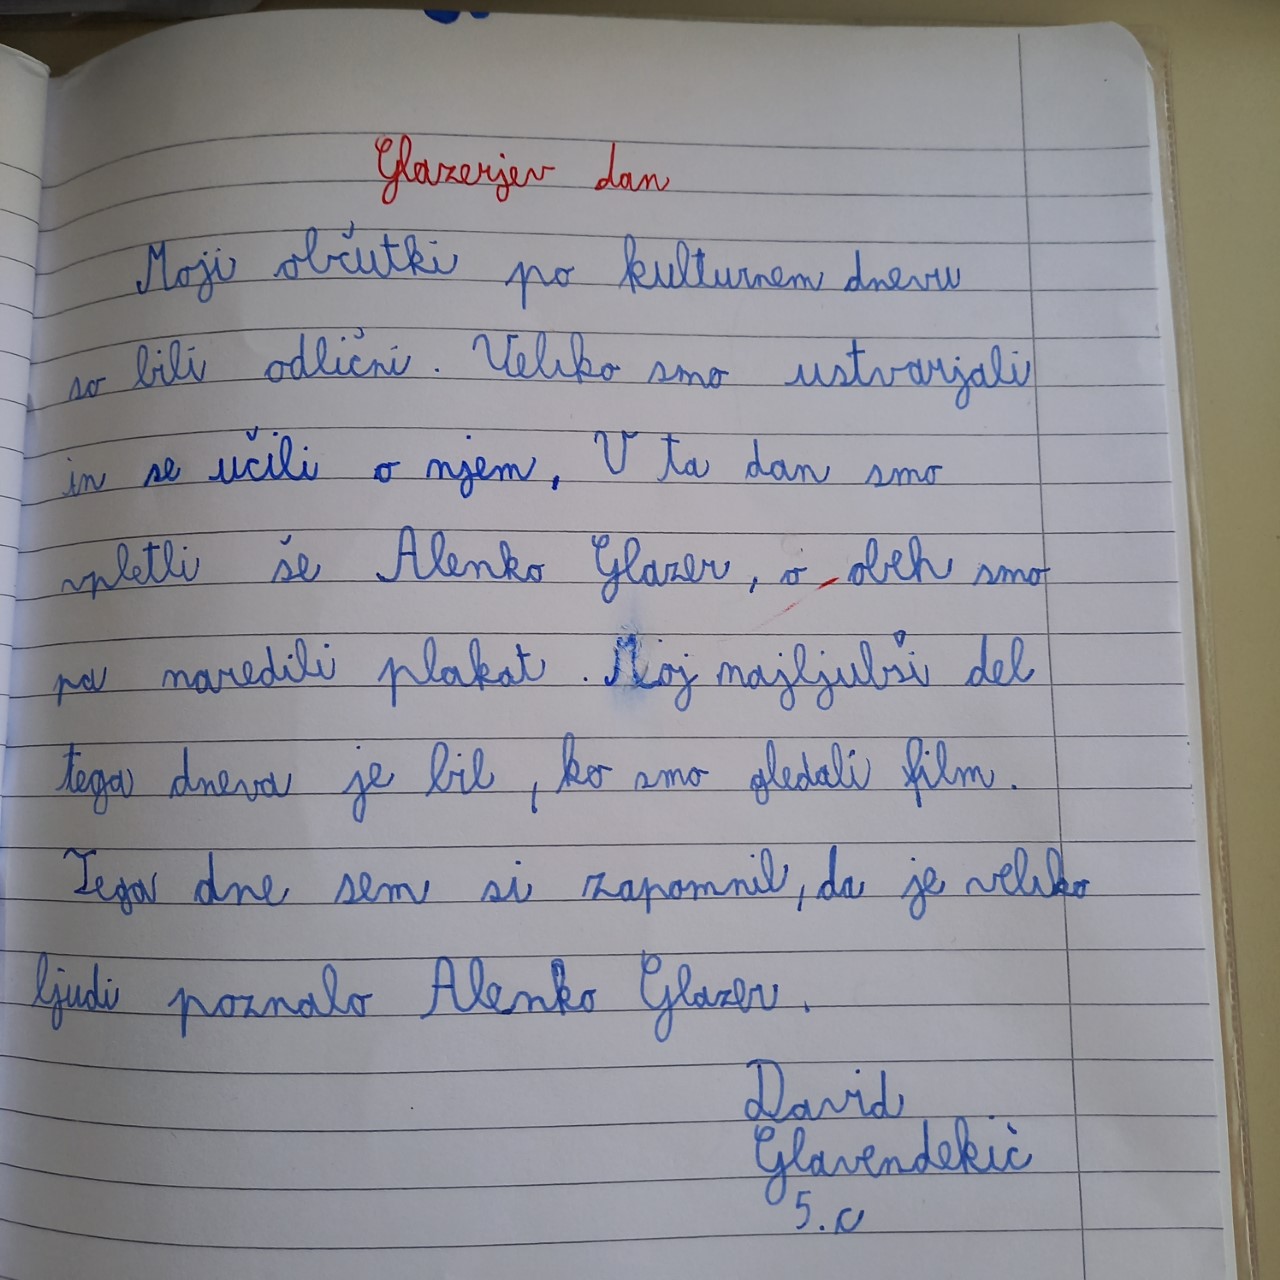 Glazerjev dan
Moji občutki po kulturnem dnevu
so bili odlični. Veliko smo ustvarjali
in se učili o njem, V ta dan smo
vpletli še Alenko Glazer, o obeh smo
pa naredili plakat. Moj najljubši del
tega dneva je bil, ko smo gledali film.
Tega dne sem si zapomnil, da je veliko
ljudi poznalo Alenko Glazer.
David
Glavendekić
5. c